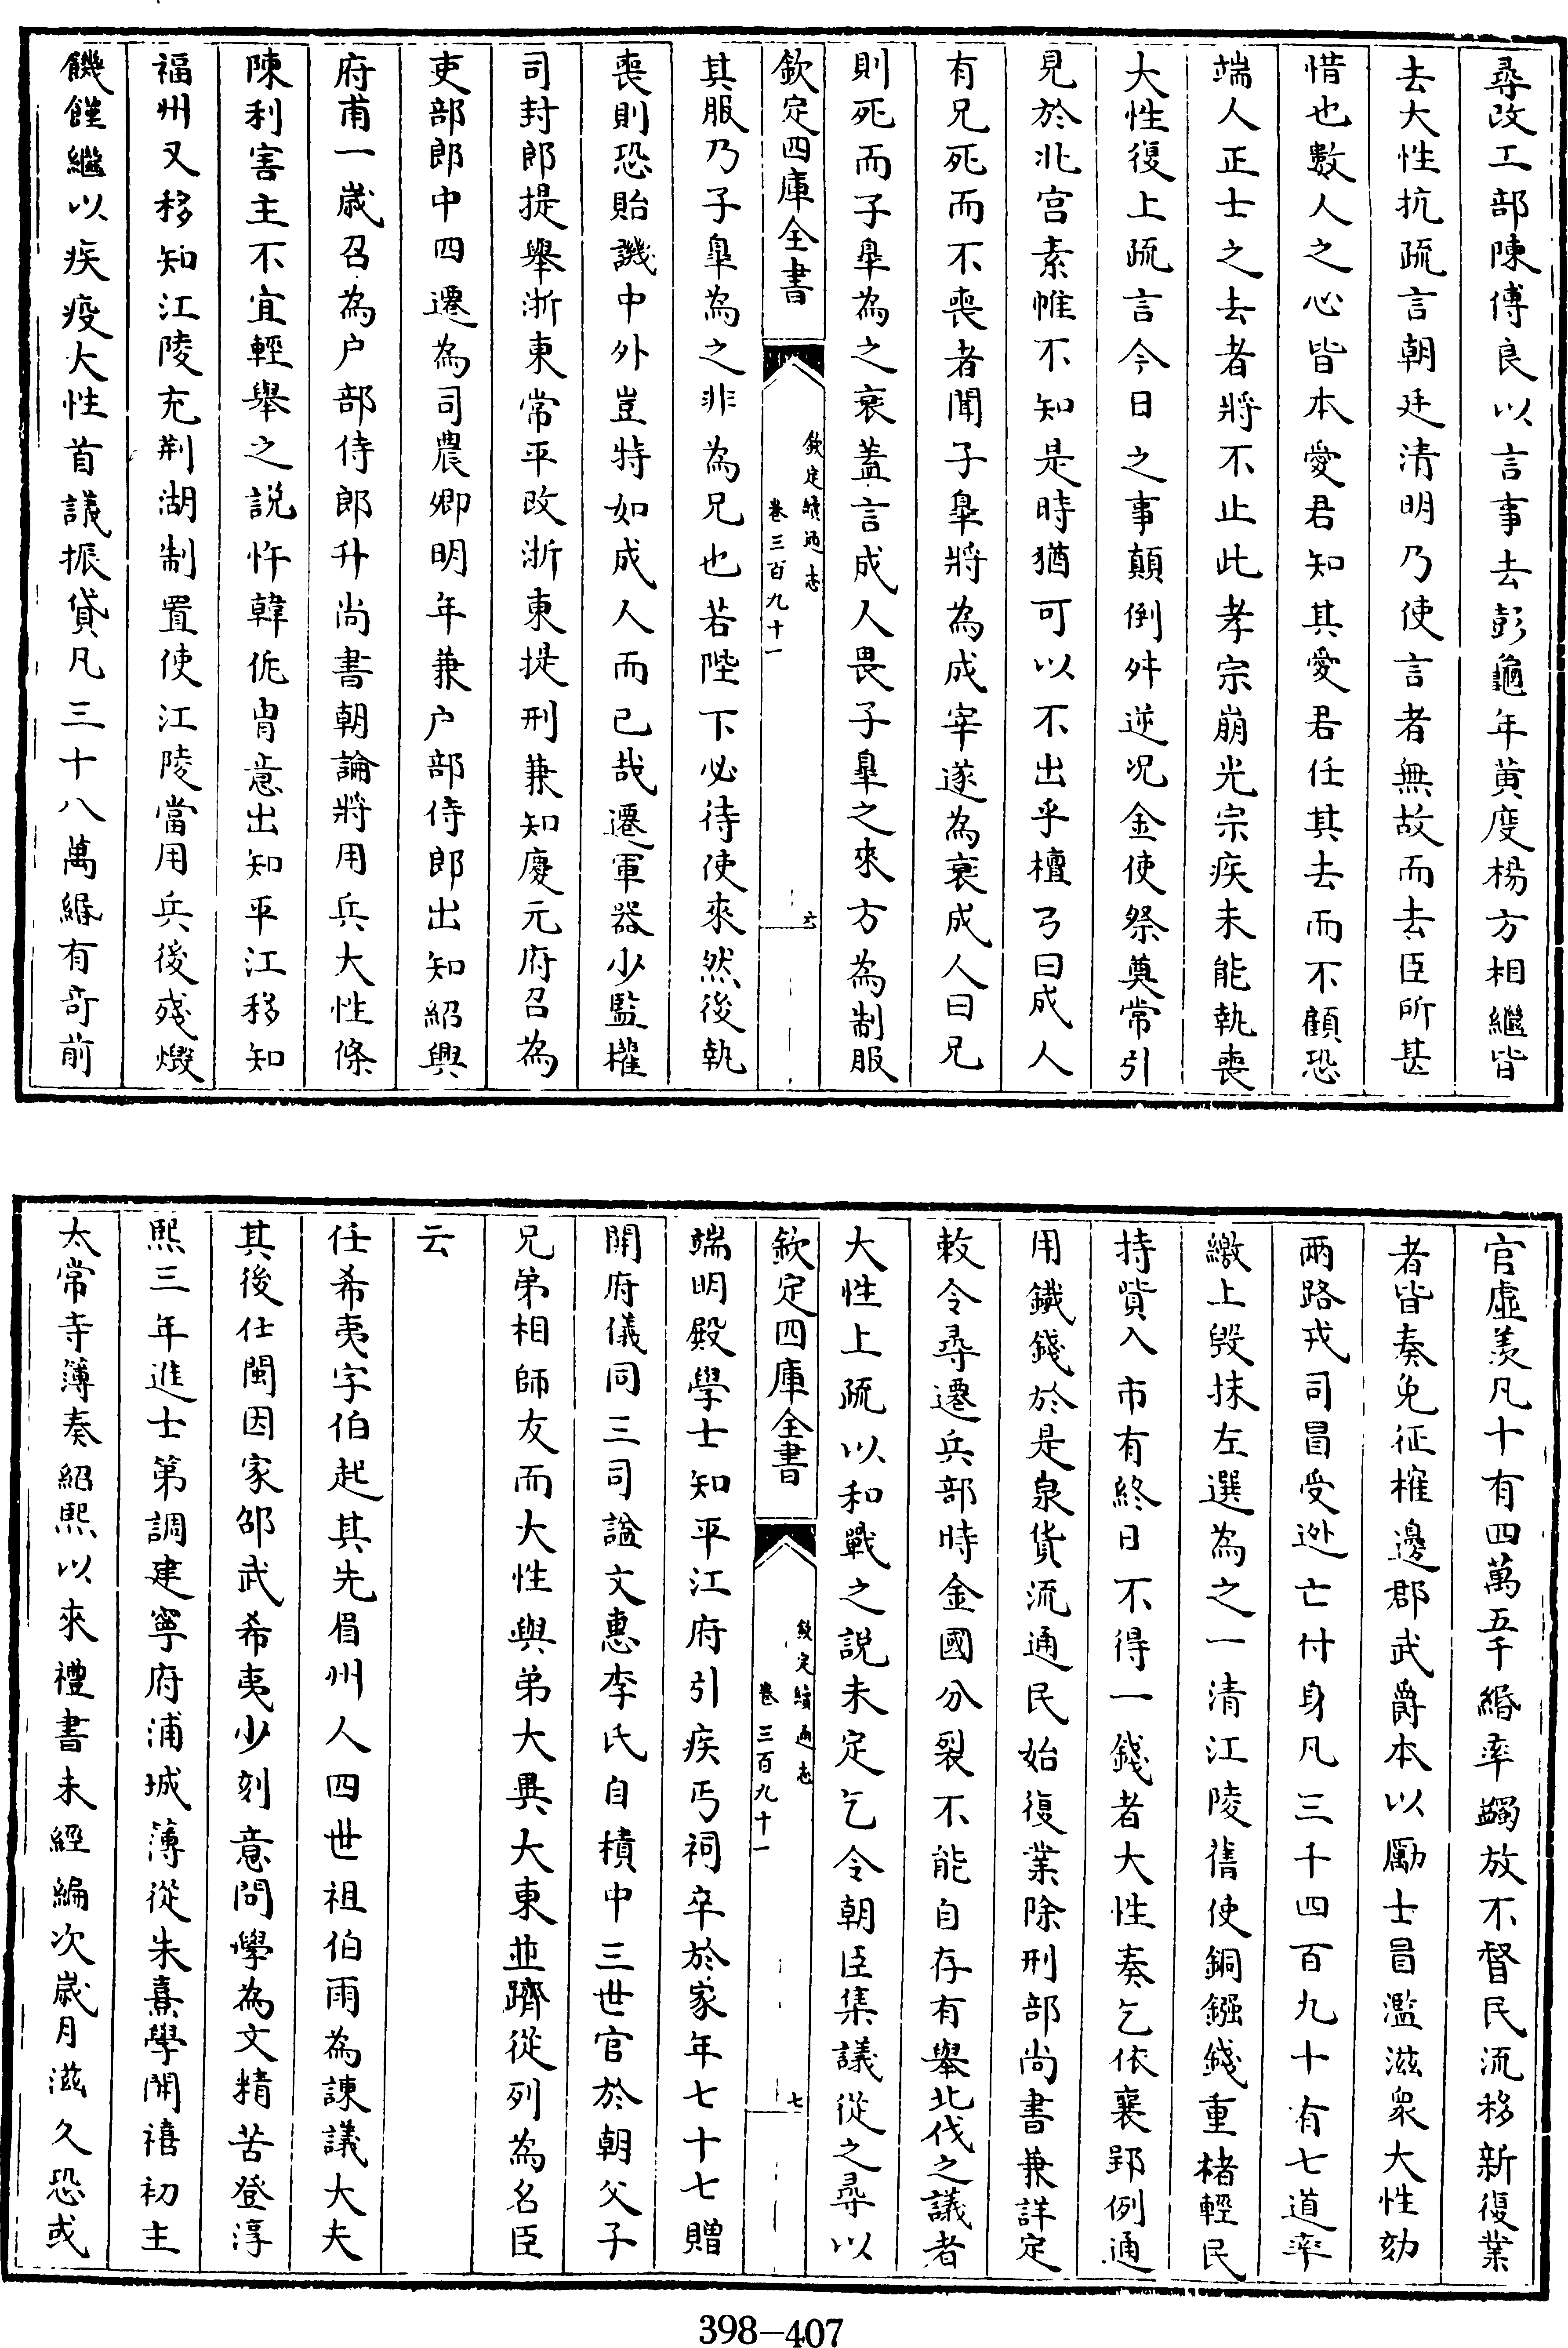 尋改工部陳傅良以言事去彭龜年黃度楊方相繼皆
去大性抗疏言朝廷清明乃使言者無故而去臣所甚
惜也數人之心皆本愛君知其愛君任其去而不顧恐
端人正士之去者將不止此孝宗崩光宗疾未能執喪
大性復上疏言今日之事顛倒舛逆况金使祭奠常引
見於北宮素帷不知是時猶可以不出乎檀弓曰成人
有兄死而不喪者聞子臯將為成宰遂為衰成人曰兄
則死而子臯為之衰蓋言成人畏子臯之來方為制服
欽定四庫全書
欽定續通志
卷三百九十一
六
其服乃子臯為之非為兄也若陛下必待使來然後執
喪則恐貽譏中外豈特如成人而已哉遷軍器少監權
司封郎提舉浙東常平改浙東提刑兼知慶元府召為
吏部郎中四遷為司農卿明年兼户部侍郎出知紹興
府甫一歲召為户部侍郎升尚書朝論將用兵大性條
陳利害主不宜輕舉之説忤韓侂胄意出知平江移知
福州又移知江陵充荆湖制置使江陵當用兵後殘燬
饑饉繼以疾疫大性首議振貸凡三十八萬緡有奇前
官虛羨凡十有四萬五千緡率蠲放不督民流移新復業
者皆奏免征榷邊郡武爵本以勵士冒濫滋衆大性劾
兩路戎司冒受逊亡付身凡三千四百九十有七道率
繳上毀抹左選為之一清江陵舊使銅鏹錢重楮輕民
持貲入市有終日不得一錢者大性奏乞依襄郢例通
用鐵錢於是泉貨流通民始復業除刑部尚書兼詳定
敕令尋遷兵部時金國分裂不能自存有舉北伐之議者
大性上疏以和戰之説未定乞令朝臣集議從之尋以
欽定四庫全書
欽定續通志
卷三百九十一
七
端明殿學士知平江府引疾丐祠卒於家年七十七贈
開府儀同三司諡文惠李氏自積中三世官於朝父子
兄弟相師友而大性與弟大異大東並躋從列為名臣
云
任希夷字伯起其先眉州人四世祖伯雨為諫議大夫
其後仕閩因家邵武希夷少刻意問學為文精苦登淳
熙三年進士第調建寧府浦城簿從朱熹學開禧初主
太常寺簿奏紹熙以來禮書未經編次歲月滋久恐或
398-407